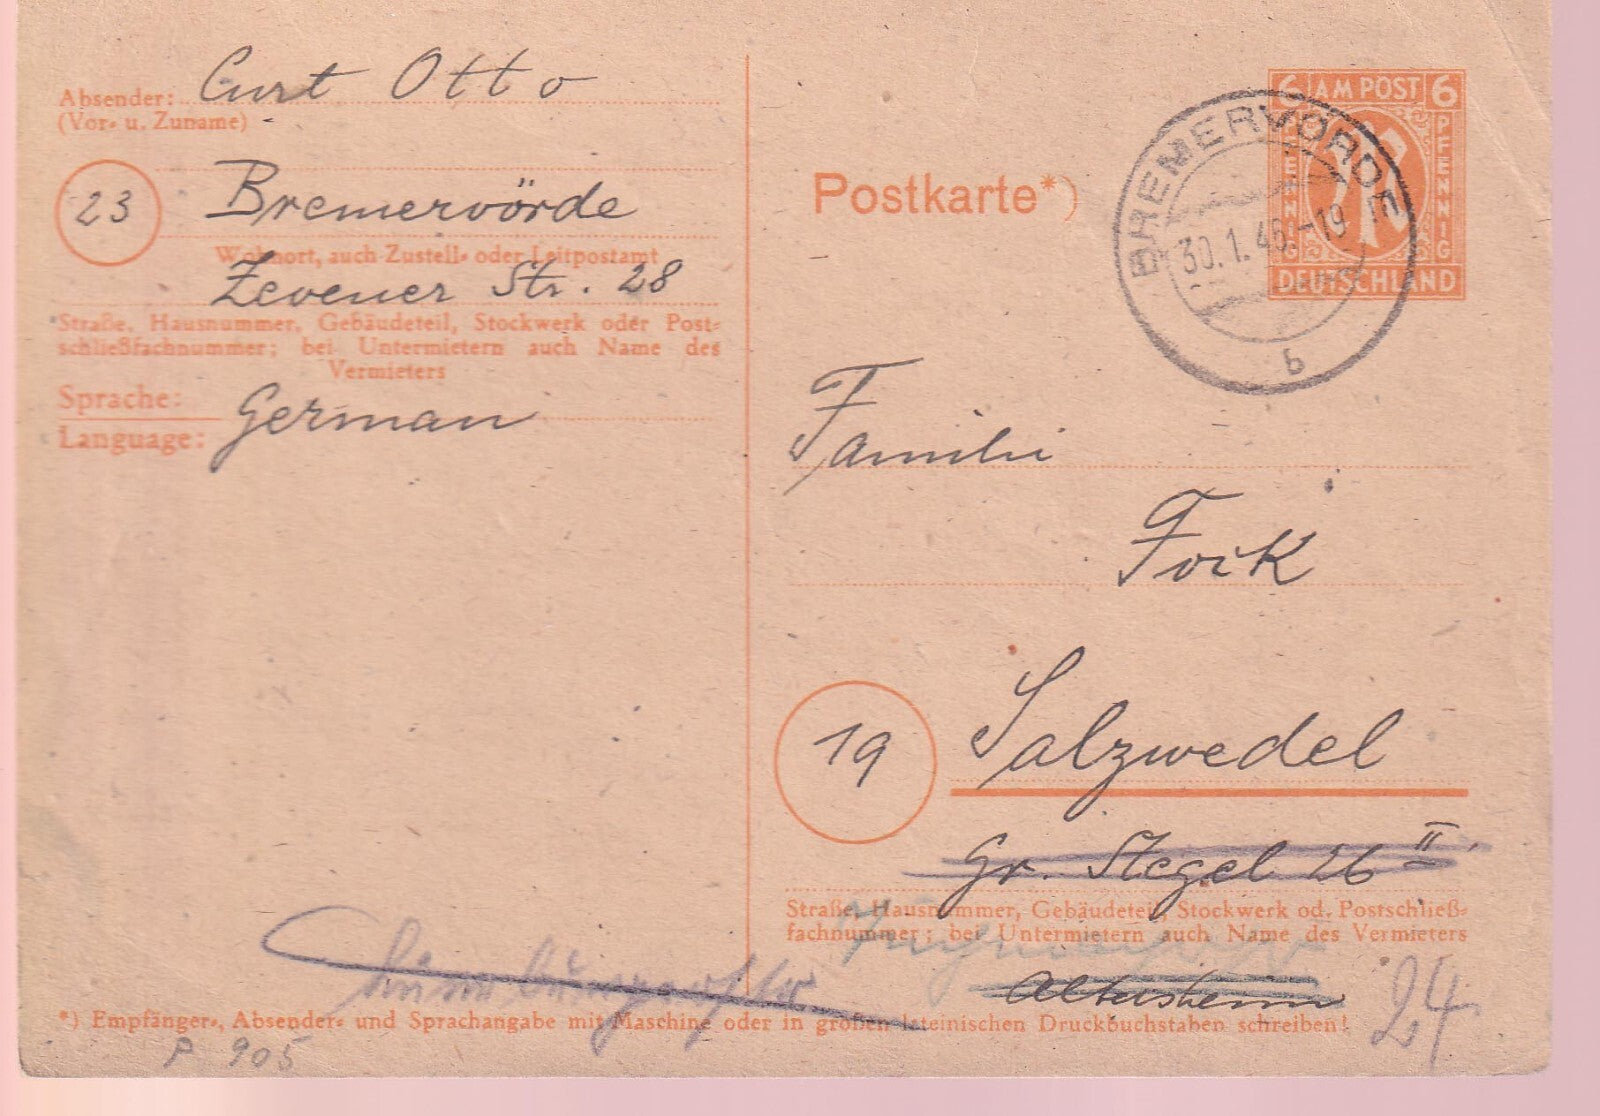 Absender: Curt Otto
(Vor- u. Zuname)
23 Bremervörde
Wohnort, auch Zustell- oder Leitpostamt
Zevener Str. 28
Straße, Hausnummer, Gebäudeteil, Stockwerk oder Post-
schließfachnummer; bei Untermietern auch Name des
Vermieters
Sprache:
Language: German
Postkarte*)
6 AM POST 6
PFENNIG PFENNIG
DEUTSCHLAND
BREMERVÖRDE
30.1.46.-19
b
Familie
Fock
19 Salzwedel
Gr. Stegel 26 II
Straße, Hausnummer, Gebäudeteil, Stockwerk od. Postschließ-
fachnummer; bei Untermietern auch Name des Vermieters
Altersheim
24
*) Empfänger-, Absender- und Sprachangabe mit Maschine oder in großen lateinischen Druckbuchstaben schreiben!
P 905